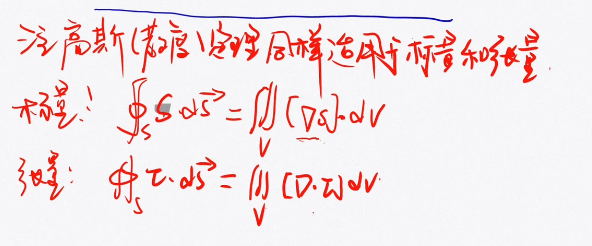 注高斯(散度)定理同样适用于标量和张量.
标量: ∯_S S·d\vec{S} = ∭_V (∇S)·dV
张量: ∯_S τ·d\vec{S} = ∭_V (∇·τ)dV